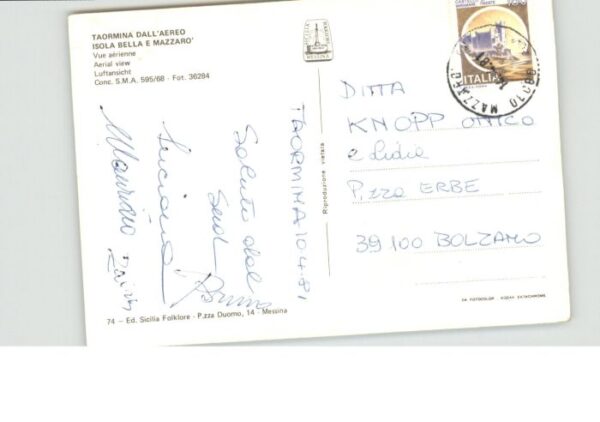 TAORMINA DALL'AEREO
ISOLA BELLA E MAZZARO'
Vue aérienne
Aerial view
Luftansicht
Conc. S.M.A. 595/68 - Fot. 36284
SICILIA
MESSINA
ITALIA
MAZZARO
DITTA
KNOPP
e Lidia
P.zza ERBE
39100 BOLZANO
Riproduzione vietata
TAORMINA 10.4.81
Saluti dal
Sud
Bruno
Luciana
Maurizio
74 - Ed. Sicilia Folklore - P.zza Duomo, 14 - Messina
KODAK EKTACHROME